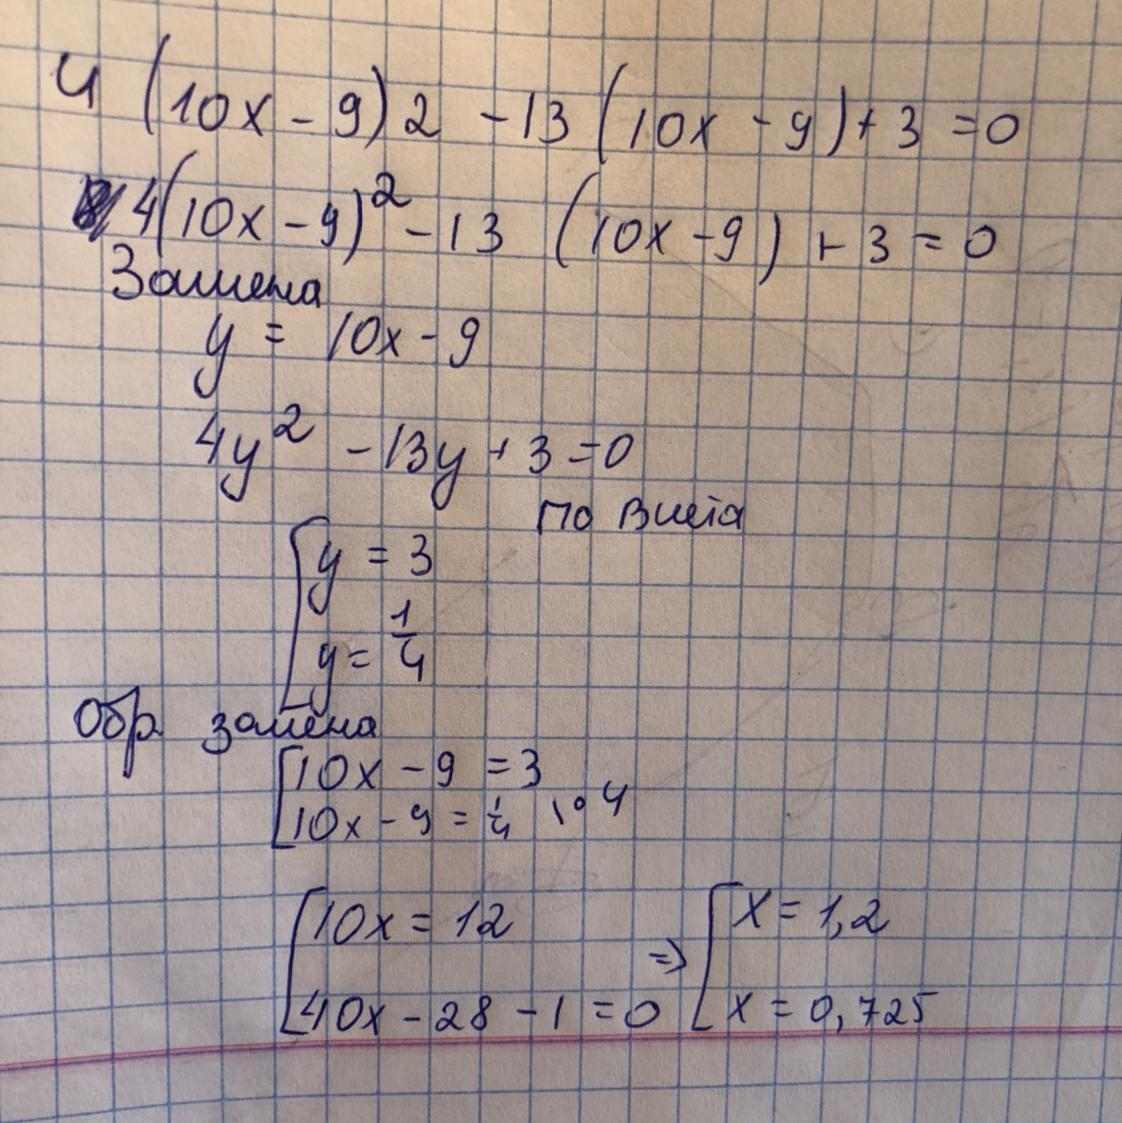 4 (10x - 9)2 - 13 (10x - 9) + 3 = 0
4(10x - 9)² - 13 (10x - 9) + 3 = 0
Замена
y = 10x - 9
4y² - 13y + 3 = 0
по Виета
[ y = 3
y = 1/4
Обр. замена
[ 10x - 9 = 3
10x - 9 = 1/4 | · 4
[ 10x = 12
40x - 28 - 1 = 0
=> [ x = 1,2
x = 0,725